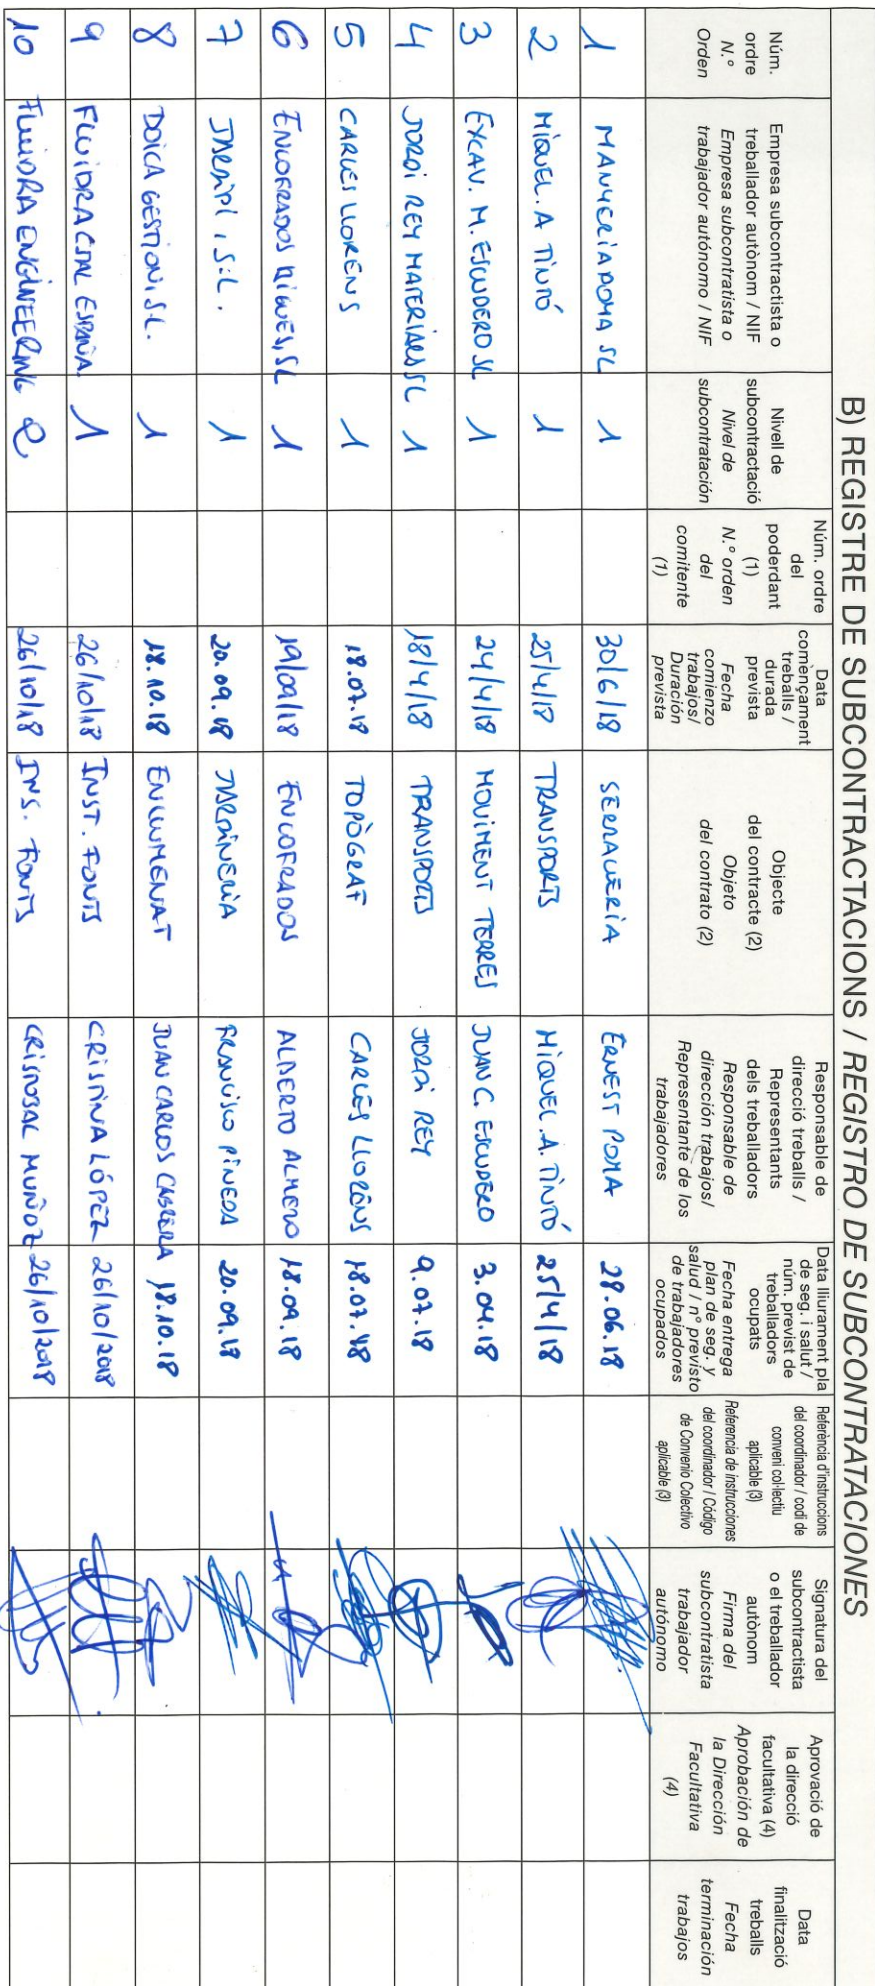 B) REGISTRE DE SUBCONTRACTACIONS / REGISTRO DE SUBCONTRATACIONES
Núm.
ordre
N.º
Orden
Empresa subcontractista o
treballador autònom / NIF
Empresa subcontratista o
trabajador autónomo / NIF
Nivell de
subcontractació
Nivel de
subcontratación
Núm. ordre
del
poderdant
(1)
N.º orden
del
comitente
(1)
Data
començament
treballs /
durada
prevista
Fecha
comienzo
trabajos/
Duración
prevista
Objecte
del contracte (2)
Objeto
del contrato (2)
Responsable de
direcció treballs /
Representants
dels treballadors
Responsable de
dirección trabajos/
Representante de los
trabajadores
Data lliurament pla
de seg. i salut /
núm. previst de
treballadors
ocupats
Fecha entrega
plan de seg. y
salud / nº previsto
de trabajadores
ocupados
Referència d'instruccions
del coordinador / codi de
conveni col·lectiu
aplicable (3)
Referencia de instrucciones
del coordinador / Código
de Convenio Colectivo
aplicable (3)
Signatura del
subcontractista
o el treballador
autònom
Firma del
subcontratista
trabajador
autónomo
Aprovació de
la direcció
facultativa (4)
Aprobación de
la Dirección
Facultativa
(4)
Data
finalització
treballs
Fecha
terminación
trabajos
1 MANYERIA POMA SL 1 30/6/18 SERRALLERIA ERNEST POMA 29.06.18
2 MIQUEL. A TINTÓ 1 25/4/18 TRANSPORTS MIQUEL. A. TINTÓ 25/4/18
3 EXCAV. M. ESCUDERO SL 1 24/4/18 MOVIMENT TERRES JUAN C. ESCUDERO 3.04.18
4 JORDI REY MATERIALES SL 1 18/4/18 TRANSPORTS JORDI REY 9.07.18
5 CARLES LLORENS 1 18.07.18 TOPÒGRAF CARLES LLORENS 18.07.18
6 ENCOFRADOS SL 1 19/09/18 ENCOFRADOS ALBERTO 18.09.18
7 JARDIPI, S.L. 1 20.09.18 JARDINERIA FRANCISCO PINEDA 20.09.18
8 DOICA GESTION, S.L. 1 18.10.18 ENLLUMENAT JUAN CARLOS CABRERA 18.10.18
9 FLUIDRA CIAL ESPAÑA 1 26/10/18 INST. FONTS CRISTINA LÓPEZ 26/10/2018
10 FLUIDRA ENGINEERING 2 26/10/18 INS. FONTS CRISTOBAL MUÑOZ 26/10/2018